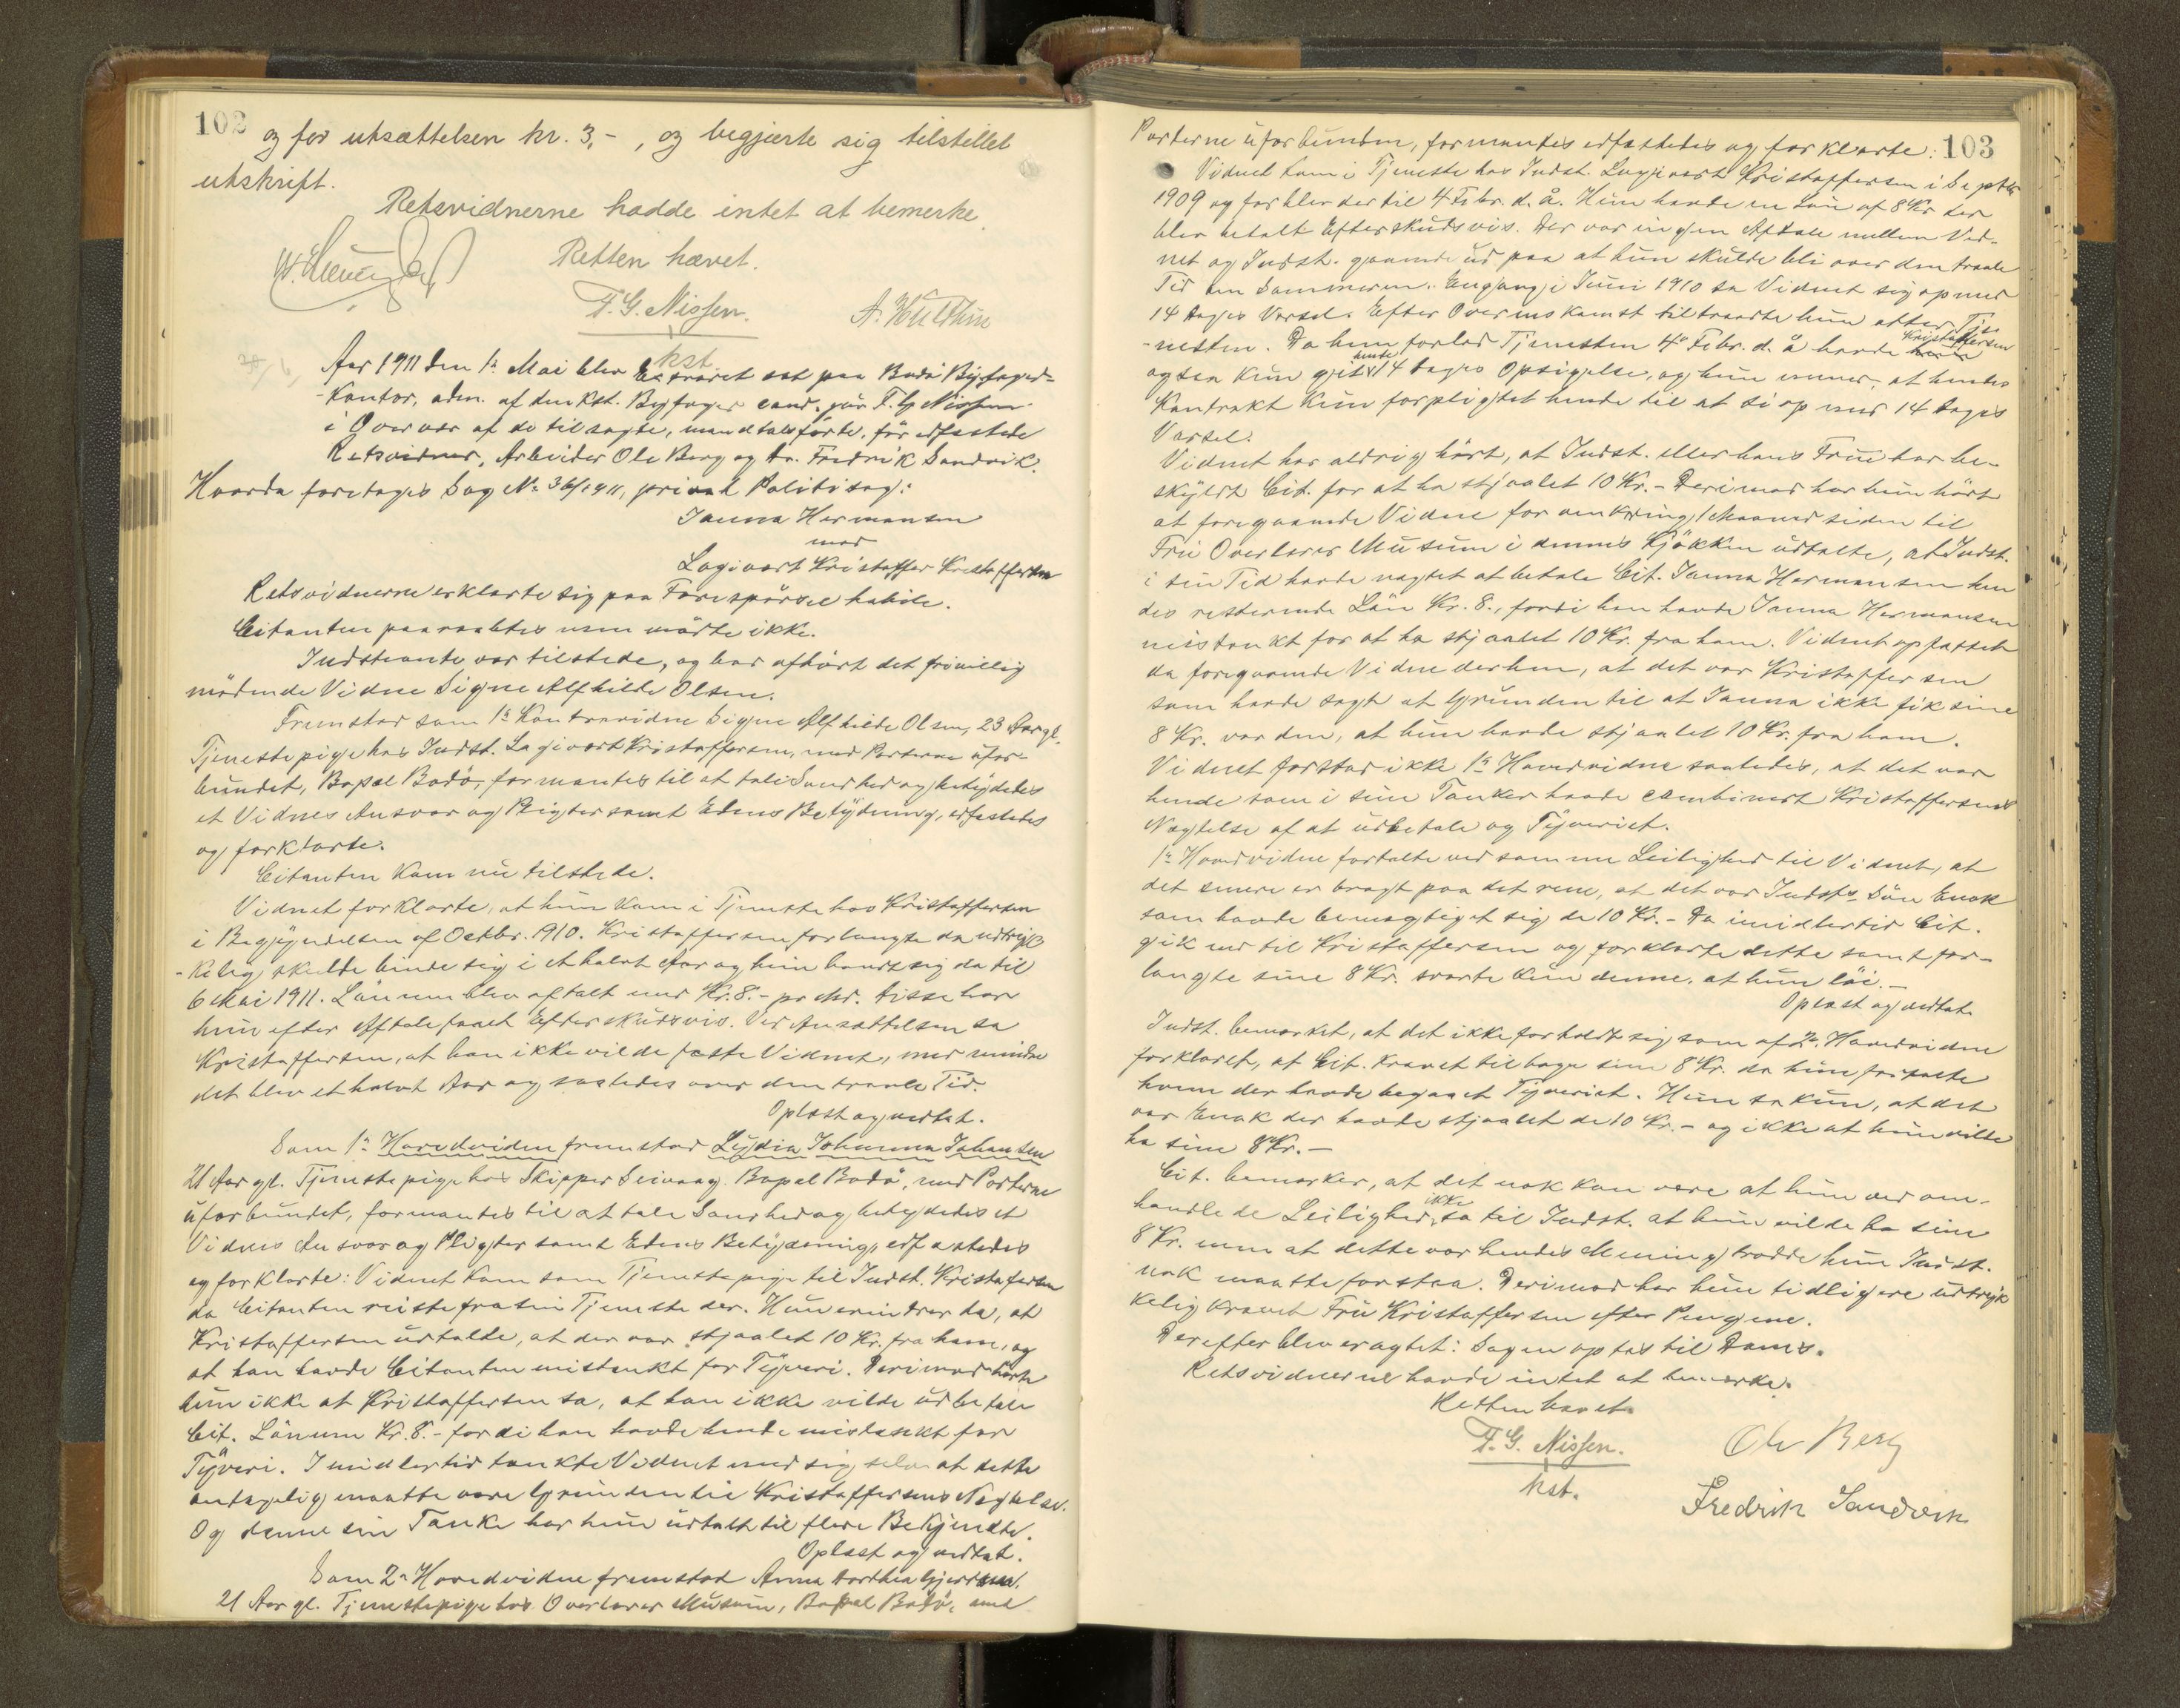 102
og for utsættelsen kr. 3,- , og begjærte sig tilstillet
utskrift.
Retsvidnerne hadde intet at bemerke.
Retten hævet.
F. G. Nissen.
kst.
Aar 1911 den 1ste Mai blev Extraret sat paa Bodø Byfoged-
-Kontor, adm. af den kst. Byfoged cand. jur F. G. Nissen
i Overvær af de tilsagte, mandtalsførte, før edfæstede
Retsvidner, Arbeider Ole Berg og do. Fredrik Sandvik.
Hvorda foretages Sag No 36/1911, privat Politisag:
Janna Hermansen
mod
Logivært Kristoffer Kristoffersen
Retsvidnerne erklærte sig paa Forespørsel habile.
Citanten paaraabtes men mødte ikke.
Indstevnte var tilstede, og har afhørt det frivillig
mødende Vidne Signe Alfhilde Olsen.
Fremstod som 1ste Kontravidne Signe Alfhilde Olsen, 23 Aar gl.
Tjenestepige hos Indst. Logivært Kristoffersen, med Parterne ufor-
bundet, Bopæl Bodø, formantes til at tale Sandhed og betydedes
et Vidnes Ansvar og Pligter samt Edens Betydning, edfæstedes
og forklarte.
Citanten kom nu tilstede.
Vidnet forklarte, at hun kom i Tjeneste hos Kristoffersen
i Begyndelsen af Octbr. 1910. Kristoffersen forlangte da udtryk
-kelig skulde binde sig i et halvt Aar og hun bandt sig da til
6 Mai 1911. Lønnen blev aftalt med Kr. 8.- pr Md. Disse har
hun efter Aftale faaet Efterskudsvis. Ved Ansættelsen sa
Kristoffersen, at han ikke vilde fæste Vidnet, med mindre
det blev et halvt Aar og saaledes over den travle Tid.
Oplæst og vedtat.
Som 1ste Hovedvidne fremstod Lydia Johanna Johansen
21 Aar gl. Tjenestepige hos Skipper Seivaag. Bopæl Bodø, med Parterne
uforbundet, formantes til at tale Sandhed og betydedes et
Vidnes Ansvar og Pligter samt Edens Betydning, edfæstedes
og forklarte: Vidnet kom som Tjenestepige til Indst. Kristoffersen
da Citanten reiste fra sin Tjeneste der. Hun erindrer da, at
Kristoffersen udtalte, at der var stjaalet 10 Kr. fra ham, og
at han havde Citanten mistænkt for Tyveri. Derimod hørte
hun ikke at Kristoffersen sa, at han ikke vilde udbetale
Cit. Lønnen Kr. 8.- fordi han havde hende mistænkt for
Tyveri. Imidlertid tænkte Vidnet med sig selv at dette
antagelig maatte være Grunden til Kristoffersens Negtelse.
Og denne sin Tanke har hun udtalt til flere Bekjendte.
Oplæst og vedtat.
Som 2n Hovedvidne fremstod Anna Dorthea
21 Aar gl. Tjenestepige hos Overlærer Musum, Bopæl Bodø, med
103
Parterne uforbunden, formantes edfæstedes og forklarte:
Vidnet kom i Tjeneste hos Indst. Logivært Kristoffersen i Septbr
1909 og forblev der til 4 Febr. d. å. Hun havde en Løn af 8 Kr der
blev betalt Efterskudsvis. Der var ingen Aftale mellem Vid-
net og Indst. gaaende ud paa at hun skulde bli over den travle
Tid om Sommeren. Engang i Juni 1910 sa Vidnet sig op med
14 Dages Varsel. Efter Overenskomst tiltraadte hun atter Tje-
-nesten. Da hun forlod Tjenesten 4de Febr. d. å havde Kristoffersen
ogsaa kun git hende 14 Dages Opsigelse, og hun mener, at hendes
Kontrakt kun forpligtet hende til at si op med 14 Dages
Varsel.
Vidnet har aldrig hørt, at Indst. eller hans Frue har be-
skyldt Cit. for at ha stjaalet 10 Kr. - Derimod har hun hørt
at foregaaende Vidne for omkring 1 Maaned siden til
Fru Overlærer Musum i dennes Kjøkken udtalte, at Indst.
i sin Tid havde nægtet at betale Cit. Janna Hermansen hen
des resterende Løn Kr. 8., fordi han havde Janna Hermansen
mistænkt for at ha stjaalet 10 Kr. fra ham. Vidnet opfattet
da foregaaende Vidne derhen, at det var Kristoffersen
som havde sagt at Grunden til at Janna ikke fik sine
8 Kr. var den, at hun havde stjaalet 10 Kr. fra ham.
Vidnet forstod ikke 1ste Hovedvidne saaledes, at det var
hende som i sine Tanker havde combinert Kristoffersens
Nægtelse af at udbetale og Tyveriet.
1ste Hovedvidne fortalte ved samme Leilighed til Vidnet, at
det senere er bragt paa det rene, at det var Indsts Søn Enok
som havde bemægtiget sig de 10 Kr. - Da imidlertid Cit.
gik ned til Kristoffersen og forklarte dette samt for-
langte sine 8 Kr. svarte kun denne, at hun løi. -
Oplæst og vedtat.
Indst. bemærket, at det ikke forholdt sig som af 2. Hovedvidne
forklaret, at Cit. krævet tilbage sine 8 Kr. da hun fortalte
hvem der havde begaaet Tyveriet. Hun sa kun, at det
var Enok der havde stjaalet de 10 Kr. - og ikke at hun vilde
ha sine 8 Kr. -
Cit. bemærker, at det nok kan være at hun ved om-
handlede Leilighed ikke sa til Indst. at hun vilde ha sine
8 Kr. men at dette var hendes Mening trodde hun Indst.
nok maatte forstaa. Derimod har hun tidligere udtryk
kelig krævet Fru Kristoffersen efter Pengene.
Derefter blev eragtet: Sagen optas til Doms.
Retsvidnerne havde intet at bemærke.
Retten hævet.
F. G. Nissen.
kst.
Ole Berg
Fredrik Sandvik